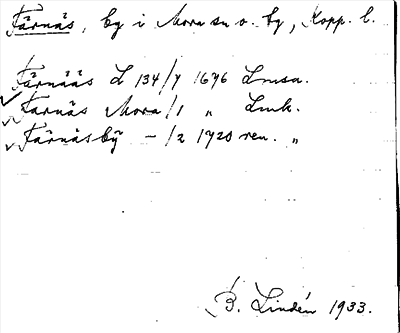 Färnäs, by i Mora sn o. by, Kopp. l.
Färnääs L 134/7 1696 Lmsa.
Färnäs Mora/1 " Lmk.
Färnäsbÿ - /2 1720 ren. "
B. Lindén 1933.